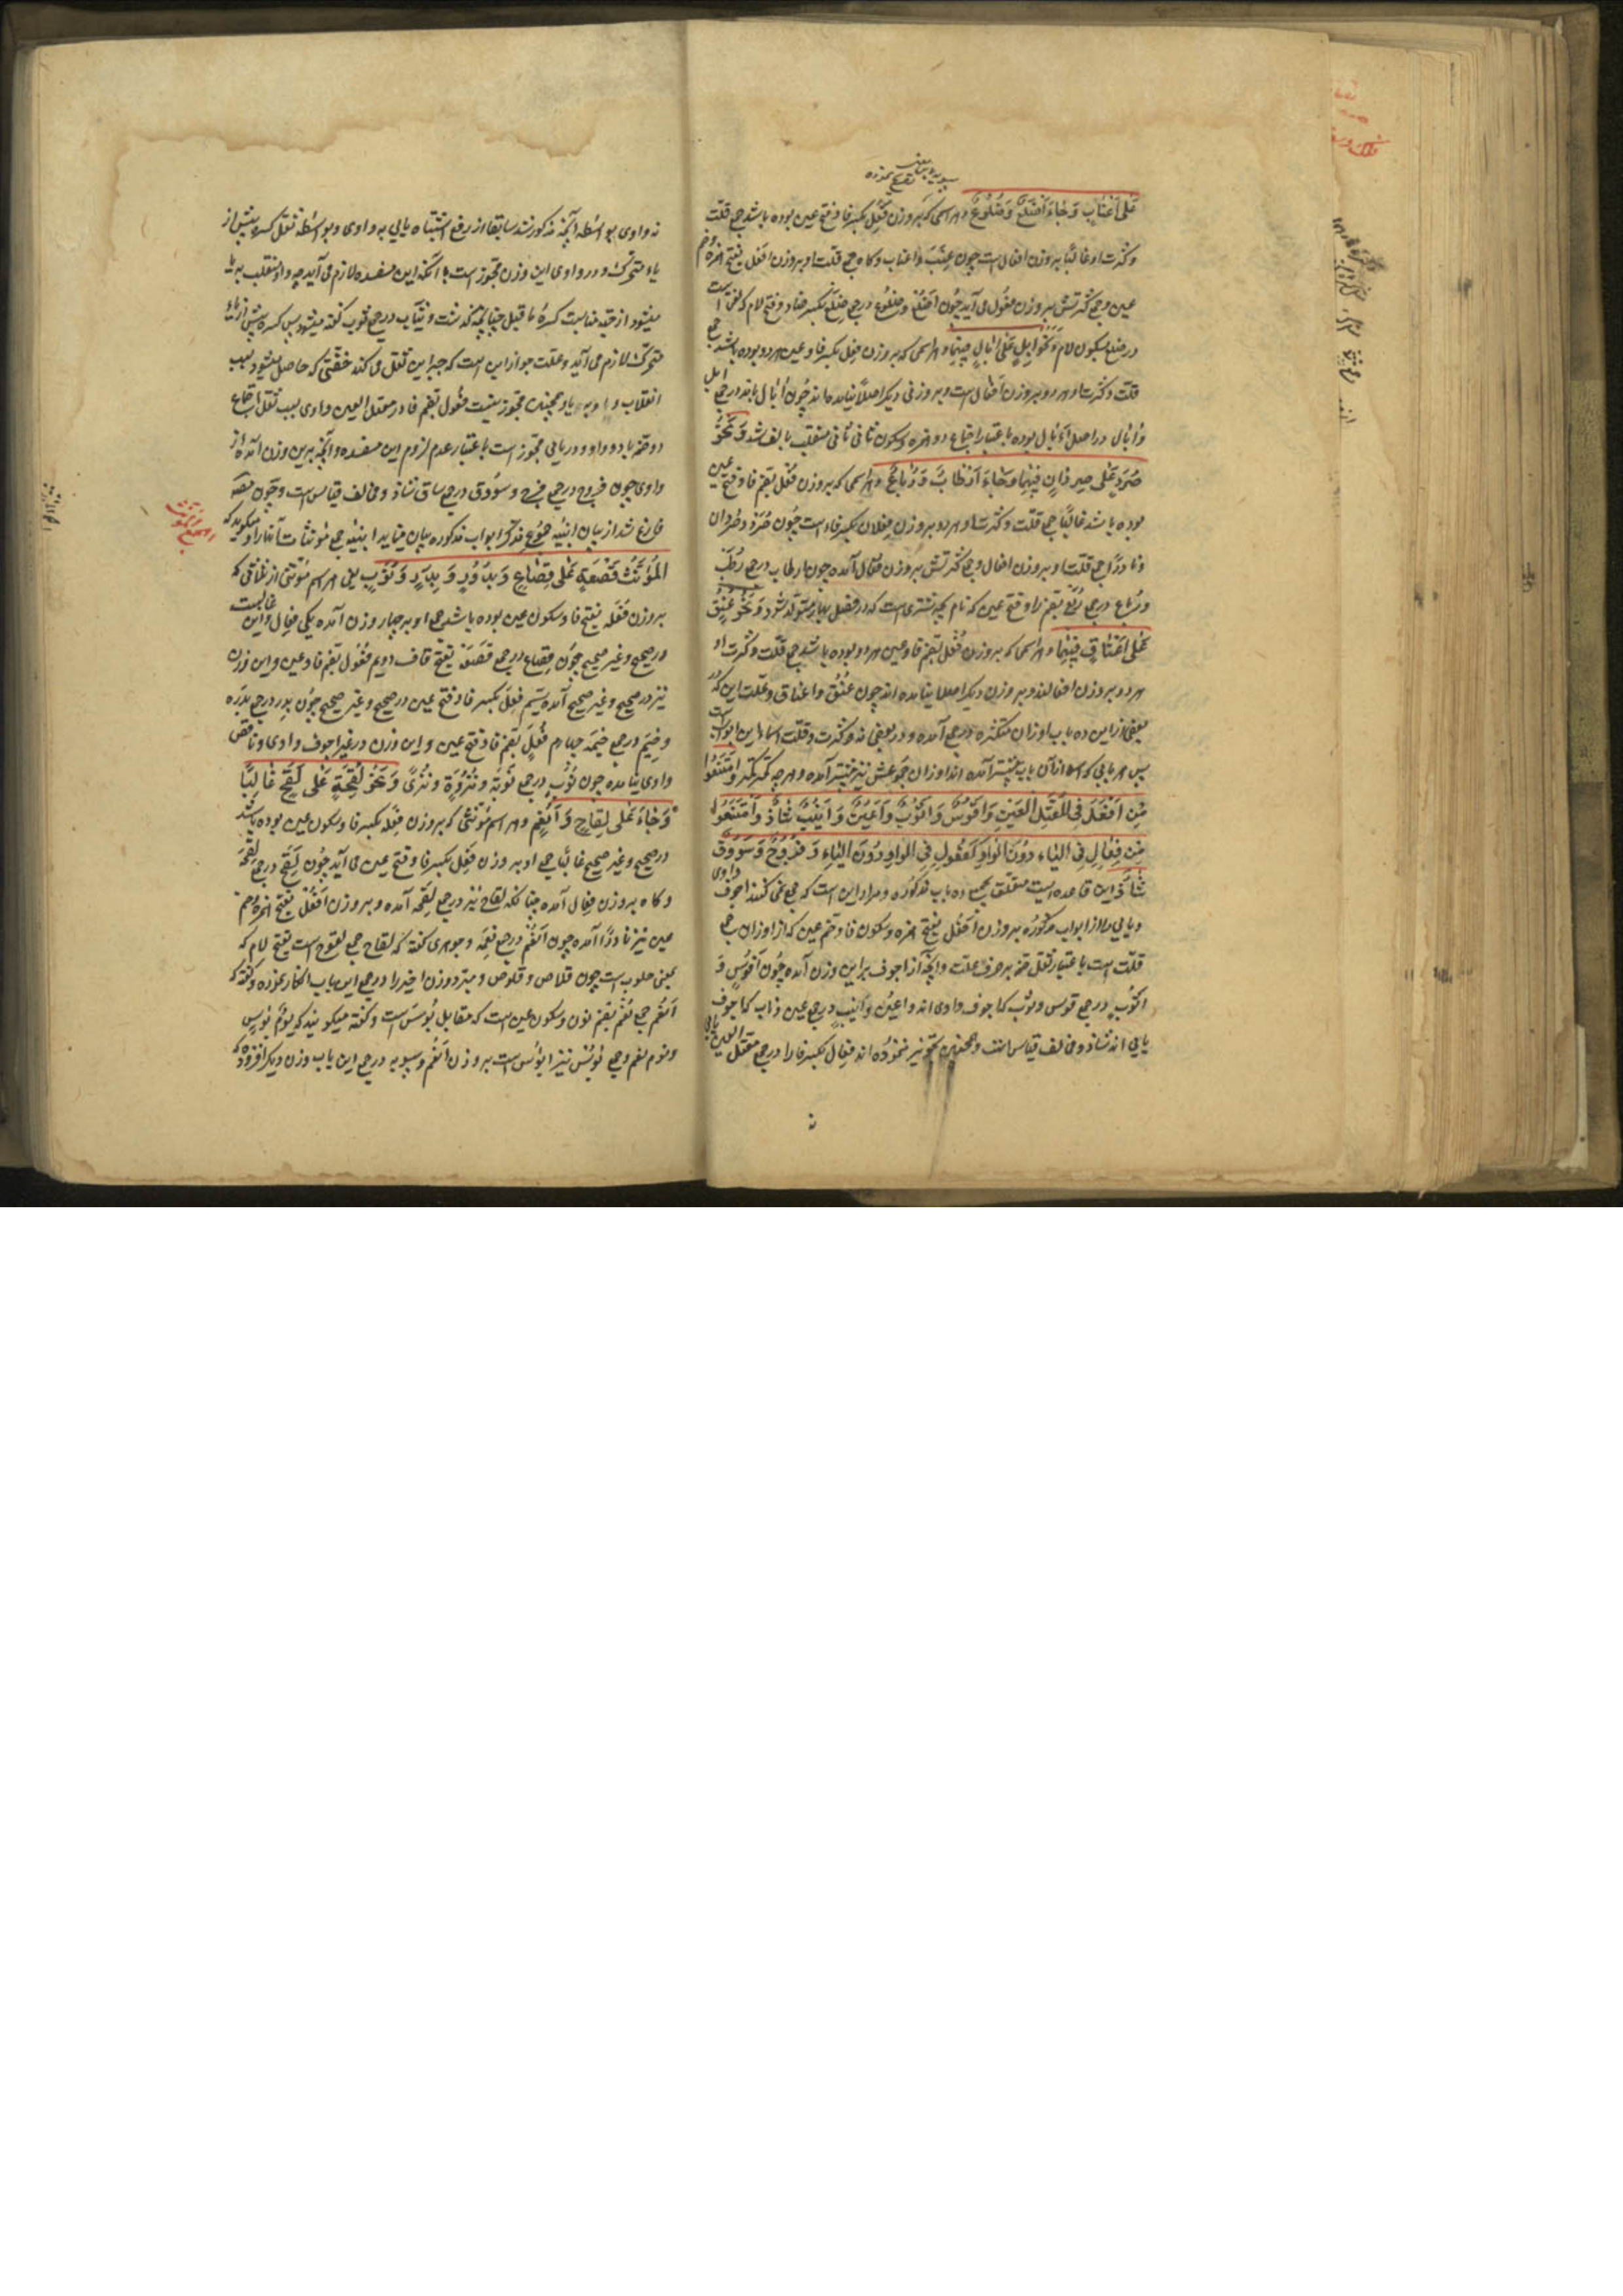 عَلی اَعنابٍ وَ جاءَ اَضلُعٌ وَ ضُلُوعٌ و هر اسمی که بر وزن فِعَل بکسر فا و فتح عین بوده باشد جمع قلت
و کثرت او غالبًا بر وزن افعال است چون عِنَب و اعناب و کاه جمع قلت او بر وزن افعُل بفتح همزه و ضم
عین و جمع کثرتش بر وزن فعُول می آید چُون اَضلُع و ضلُوع در جمع ضِلَع بکسر ضاد و فتح لام که لغتی است
در ضلع بسکون لام وَ نَحوُ اِبِلٍ عَلی اٰبالٍ فِیهِما و هر اسمی که بر وزن فِعِل بکسر فا و عین هر دو بوده باشد جمع
قلت و کثرت او هر دو بر وزن افعال است و بر وزنی دیگر اصلاً نیامده اند چُون اٰبال در جمع ابل
و اٰبال در اصل اَءبال بوده باعتبار اجتماع دو همزه و سکون ثانی ثانی منقلب بالف شد وَ نَحوُ
صُرَدٍ عَلی صِردانٍ فِیهِما وَ جاءَ اَرطابٌ وَ رِباعٌ و هر اسمی که بر وزن فُعَل بضم فا و فتح عین
بوده باشد غالبًا جمع قلت و کثرت او هر دو بر وزن فِعلان بکسر فاء است چُون صُرَد و صِردان
و نادرًا جمع قلت او بر وزن افعال و جمع کثرتش بر وزن فِعال آمده چون ارطاب در جمع رُطَب
و رِباع در جمع رُبَع بضم را و فتح عین که نام بچه شتری است که در فصل بهار متولد شود وَ نَحوُ عُنُقٍ
عَلی اَعناقٍ فِیهِما و هر اسمی که بر وزن فُعُل بضم فا و عین هر دو بوده باشد جمع قلت و کثرت او
هر دو بر وزن افعالند و بر وزن دیگر اصلا نیامده اند چون عُنُق و اعناق و علت این که در
بعضی از این ده باب اوزان متکثره در جمع آمده و در بعضی نه و کثرت و قلت اسماء این ابواب است
پس هر بابی که اسما از آن باب بیشتر آمده اند اوزان جموعش نیز بیشتر آمده و هر چه کمتر کمتر وَ امتَنَعُوا
مِن اَفعُلَ فِی المُعتَلِّ العَینِ وَ اَقوُسٌ وَ اَثوُبٌ وَ اَعیُنٌ وَ اَنیُبٌ شاذٌّ وَ امتَنَعُوا
مِن فِعالٍ فِی الیاءِ دُونَ الواوِ کَفُعُولٍ فِی الواوِ دُونَ الیاءِ وَ فُوُوجٌ وَ سُوُوقٌ
شاذٌّ این قاعده ایست متعلق بجمیع ده باب مذکوره و مراد این است که جمع نمی کنند اجوف واوی
و یایی را از ابواب مذکوره بر وزن اَفعُل بفتح همزه و سکون فا و ضم عین که از اوزان جمع
قلت است باعتبار ثقل ضمه بر حرف علت و آنچه از اجوف بر این وزن آمده چُون اَقوُس وَ
اثوُب در جمع قوس و ثوب که اجوف واوی اند و اعیُن و اَنیُب در جمع عین و ناب که اجوف
یایی اند شاذ و مخالف قیاس است و همچنین تجویز ننموده اند فِعال بکسر فا را در جمع معتل العین یایی
نه واوی بواسطه آنچه مذکور شد سابقا از رفع اشتباه یایی به واوی و بواسطه ثقل کسره پیش از
یاء متحرک و در واوی این وزن مجوز است با آنکه این مفسده لازم می آید چه واو منقلب به یا
میشود از جهت مناسبت کسره ما قبل چنانچه گذشت و ثیاب در جمع ثوب گفته میشود پس کسره پیش از یاء
متحرک لازم می آید و علت جواز این است که جبر این ثقل می کند خفتی که حاصل میشود بسبب
انقلاب واو به یا و همچنین مجوز نیست فُعُول بضم فا در معتل العین واوی بسبب ثقل اجتماع
دو ضمه با دو واو و در یایی مجوز است باعتبار عدم لزوم این مفسده و آنچه برین وزن آمده از
واوی چون فُوُوج در جمع فوج و سُوُوق در جمع ساق شاذ و مخالف قیاس است و چُون مصنف
فارغ شد از بیان ابنیه جمُوع مذکر ابواب مذکوره بیان مینماید ابنیه جمع مؤنثات آنها را و میگوید که
المُؤَنَّثُ قَصعَةٍ عَلی قِصاعٍ وَ بُدُورٍ وَ بِدَرٍ وَ نُوَبٍ یعنی هر اسم مؤنثی از ثلاثی که
بر وزن فَعلَه بفتح فا و سکون عین بوده باشد جمع او بر چهار وزن آمده یکی فِعال و این غالبست
در صحیح و غیر صحیح چُون قِصاع در جمع قَصعَة بفتح قاف دویم فُعُول بضم فا و عین و این وزن
نیز در صحیح و غیر صحیح آمده سیّم فِعَل بکسر فا و فتح عین در صحیح و غیر صحیح چُون بِدَر در جمع بَدرَه
و خِیَم در جمع خیمَه چهارم فُعَل بضم فا و فتح عین و این وزن در غیر اجوف واوی و ناقص
واوی نیامده چون نُوَب در جمع نَوبَة و نَزوَةٍ و نُزیً وَ نَحوُ لِقحَةٍ عَلی لِقَحٍ غالِبًا
وَ جاءَ عَلی لِقاحٍ وَ اَنعُمٍ و هر اسم مؤنثی که بر وزن فِعلَه بکسر فا و سکون عین بوده باشد
در صحیح و غیر صحیح غالبًا جمع او بر وزن فِعَل بکسر فا و فتح عین می آید چُون لِقَح در جمع لِقحَة
و کاه بر وزن فِعال آمده چنانکه لقاح نیز در جمع لِقحَه آمده و بر وزن اَفعُل بفتح همزه و ضم
عین نیز نادرًا آمده چون اَنعُم در جمع نِعمَه و جوهری گفته که لقاح جمع لقوح است بفتح لام که
بمعنی حلوب است چون قلاص و قلوص و مبرد وزن اخیر را در جمع این باب انکار نموده و گفته که
اَنعُم جمع نُعم بضم نون و سکون عین است که مقابل بُؤس است و گفته میگویند که یَومُ بُؤسٍ
و یوم نعم و جمع بُؤس نیز ابؤس است بر وزن اَنعُم و سیبویه در جمع این باب وزن دیگر افزوده که